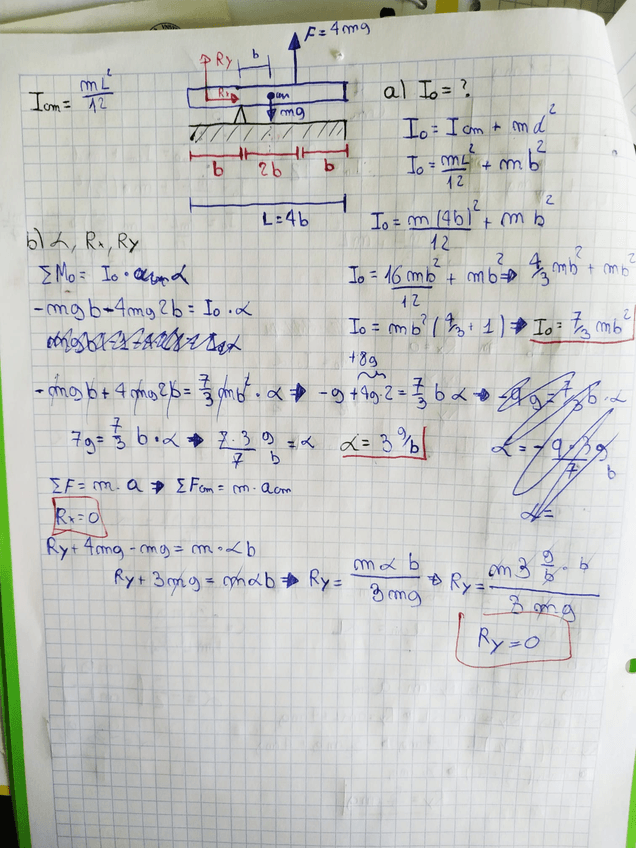 F=4mg
Ry
b
Rx
cm
mg
b 2b b
L=4b
Icm = mL²/12
a) Io = ?
Io = Icm + md²
Io = mL²/12 + mb²
Io = m(4b)²/12 + mb²
Io = 16mb²/12 + mb² ⇒ 4/3 mb² + mb²
Io = mb² (4/3 + 1) ⇒ Io = 7/3 mb²
b) α, Rx, Ry
ΣMo = Io · α
-mgb-4mg2b = Io · α
+8g
-mgb + 4mg2b = 7/3 mb² · α ⇒ -g + 4g·2 = 7/3 b α ⇒ -9g = 7/3 b · α
7g = 7/3 b · α ⇒ 7·3/7 g/b = α α = 3 g/b
α = - 9·3g/7b
α =
ΣF = m · a ⇒ ΣFcm = m · acm
Rx = 0
Ry + 4mg - mg = m · αb
Ry + 3mg = mαb ⇒ Ry = mαb/3mg ⇒ Ry = m3 g/b · b/3mg
Ry = 0